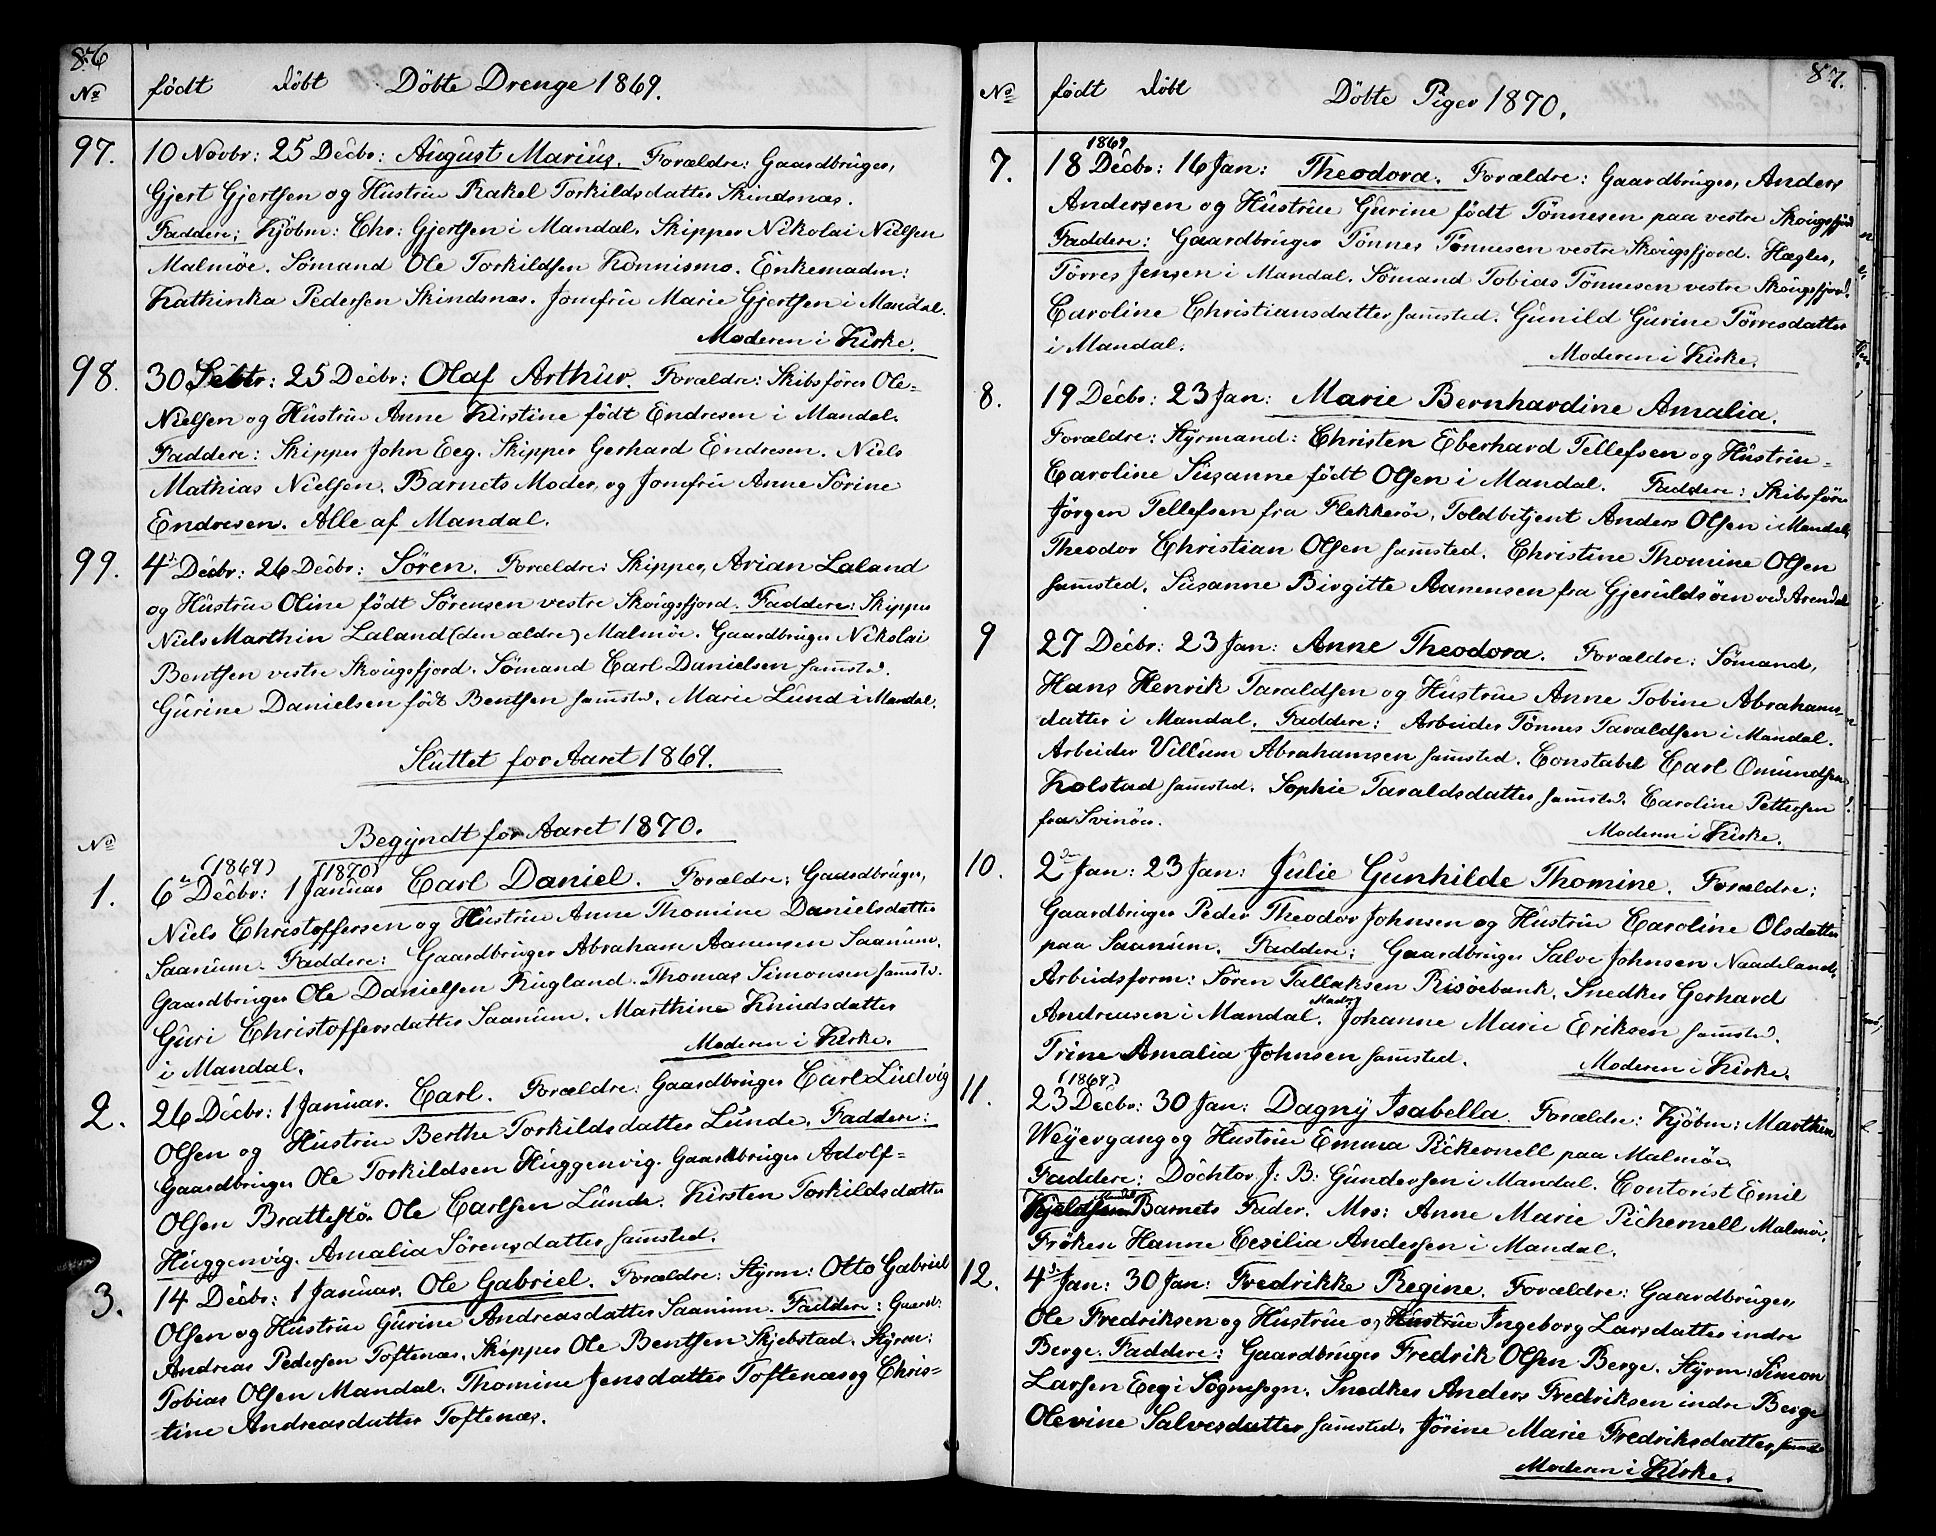 86
No født døbt Döbte Drenge 1869.
97. 10 Novbr: 25 Decbr: August Marius. Forældre: Gaardbruger,
Gjert Gjertsen og Hustrue Rakel Torkildsdatter Skindsnæs.
Faddere: Kjöbm: Chr: Gjertsen i Mandal. Skipper Nikolai Nielsen
Malmöe. Sömand Ole Torkildsen Konnismo. Enkemadm:
Kathinka Pedersen Skindsnæs. Jomfru Marie Gjertsen i Mandal.
Moderen i Kirke.
98. 30 Sebtr: 25 Decbr: Olaf Arthur. Forældre: Skibsfører Ole
Nielsen og Hustrue Anne Kirstine født Endresen i Mandal.
Faddere: Skipper John Eeg. Skipper Gerhard Endresen. Niels
Mathias Nielsen. Barnets Moder, og Jomfru Anne Sörine
Endresen. Alle af Mandal.
99. 4de Decbr: 26 Decbr: Sören. Forældre: Skipper, Arian Laland
og Hustrue Oline født Sörensen vestre Skougsfjord. Faddere: Skipper
Niels Marthin Laland (den ældre) Malmöe. Gaardbruger Nikolai
Bentsen vestre Skougsfjord. Sömand Carl Danielsen samsted.
Gurine Danielsen född Bentsen samsted. Marie Lund i Mandal.
Sluttet for Aaret 1869.
Begyndt for Aaret 1870.
No
(1869) (1870)
1. 6te Decbr: 1 Januar Carl Daniel. Forældre: Gaardbruger,
Niels Christoffersen og Hustrue Anne Thomine Danielsdatter
Saanum. Faddere: Gaardbruger Abraham Aanensen Saanum.
Gaardbruger Ole Danielsen Rugland. Thomas Simonsen samsted.
Guri Christoffersdatter Saanum. Marthine Knudsdatter
i Mandal. Moderen i Kirke.
2. 26 Decbr: 1 Januar. Carl. Forældre: Gaardbruger Carl Ludvig
Olsen og Hustrue Berthe Torkildsdatter Lunde. Faddere:
Gaardbruger Ole Torkildsen Huggenvig. Gaardbruger Adolf
Olsen Brattestö. Ole Carlsen Lunde. Kirsten Torkildsdatter
Huggenvig. Amalia Sörensdatter samsted.
3. 14 Decbr: 1 Januar. Ole Gabriel. Forældre: Styrm: Otto Gabriel
Olsen og Hustrue Gurine Andreasdatter Saanum. Faddere: Gaardb:
Andreas Pedersen Toftenæs. Skipper Ole Bentsen Skjebstad. Styrm:
Tobias Olsen Mandal. Thomine Jensdatter Toftenæs og Chris-
-tine Andreasdatter Toftenæs.
87.
No født døbt Döbte Piger 1870.
1869
7. 18 Decbr: 16 Jan: Theodora. Forældre: Gaardbruger, Anders
Andersen og Hustrue Gurine født Tönnesen paa vestre Skougsfjord
Faddere: Gaardbruger Tönnes Tönnesen vestre Skougsfjord. Hægler,
Törres Jensen i Mandal. Sömand Tobias Tönnesen vestre Skougsfjord.
Caroline Christiansdatter samsted. Gunild Gurine Törresdatter
i Mandal. Moderen i Kirke.
8. 19 Decbr: 23 Jan: Marie Bernhardine Amalia.
Forældre: Styrmand: Christen Eberhard Tellefsen og Hustrue
Caroline Susanne født Olsen i Mandal. Faddere: Skibsfører
Jörgen Tellefsen fra Flekkeröe. Toldbetjent Anders Olsen i Mandal
Theodor Christian Olsen samsted. Christine Thomine Olsen
samsted. Susanne Birgitte Aanensen fra Gjeruldsöen ved Arendal
9 27 Decbr: 23 Jan: Anne Theodora. Forældre: Sömand,
Hans Henrik Taraldsen og Hustrue Anne Tobine Abrahams-
datter i Mandal. Faddere: Arbeider Tönnes Taraldsen i Mandal.
Arbeider Villum Abrahamsen samsted. Constabel Carl Omundsen
Kolstad samsted. Sophie Taraldsdatter samsted. Caroline Pettersen
fra Svinöe. Moderen i Kirke.
10. 2den Jan: 23 Jan: Julie Gunhilde Thomine. Forældre:
Gaardbruger Peder Theodor Johnsen og Hustrue Caroline Olsdatter
paa Saanum. Faddere: Gaardbruger Salve Johnsen Naadeland.
Arbeidsform: Sören Tallaksen Risöebank. Snedker Gerhard
Andreasen i Mandal. Madm Johanne Marie Eriksen samsted.
Trine Amalia Johnsen samsted. Moderen i Kirke.
(1869)
11. 23 Decbr: 30 Jan: Dagny Isabella. Forældre: Kjöbm: Marthin
Weyergang og Hustrue Emma Pickernell paa Malmöe.
Faddere: Dochtor J. B: Gundersen i Mandal. Contorist Emil
Barnets Fader. Mrs: Anne Marie Pickernell Malmöe.
Fröken Hanne Cecilia Andersen i Mandal.
12. 4de Jan: 30 Jan: Fredrikke Regine. Forældre: Gaardbruger,
Ole Fredriksen og Hustrue og Hustrue Ingeborg Larsdatter indre
Berge. Faddere: Gaardbruger Fredrik Olsen Berge. Styrm: Simon
Larsen Eeg i Sögnesogn. Snedker Anders Fredriksen indre Berge
Olevine Salvesdatter samsted. Jörine Marie Fredriksdatter, samsted
Moderen i Kirke.